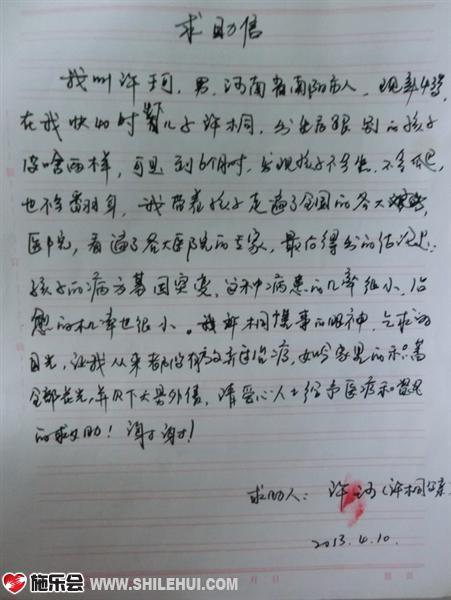 求助信
我叫许珂,男,河南省南阳市人,现年43岁,
在我快的时 儿子许桐,出生后跟别的孩子
没啥两样,可是到6个月时,发现孩子不会坐,不会爬,
也不会翻身,我带着孩子走遍了全国的各大
医院,看遍了各大医院的专家,最后得出的结论是:
孩子的病为基因突变,这种病患的几率很小,治
愈的机率也很小。我许桐 的眼神,乞求的
目光,让我从来都没有放弃过治疗,如今家里的积蓄
全部花光,并欠下大量外债,请爱心人士给予医疗和
的求助!谢谢!
求助人:许珂(许桐父亲)
2013.4.10.
施乐会 WWW.SHILEHUI.COM